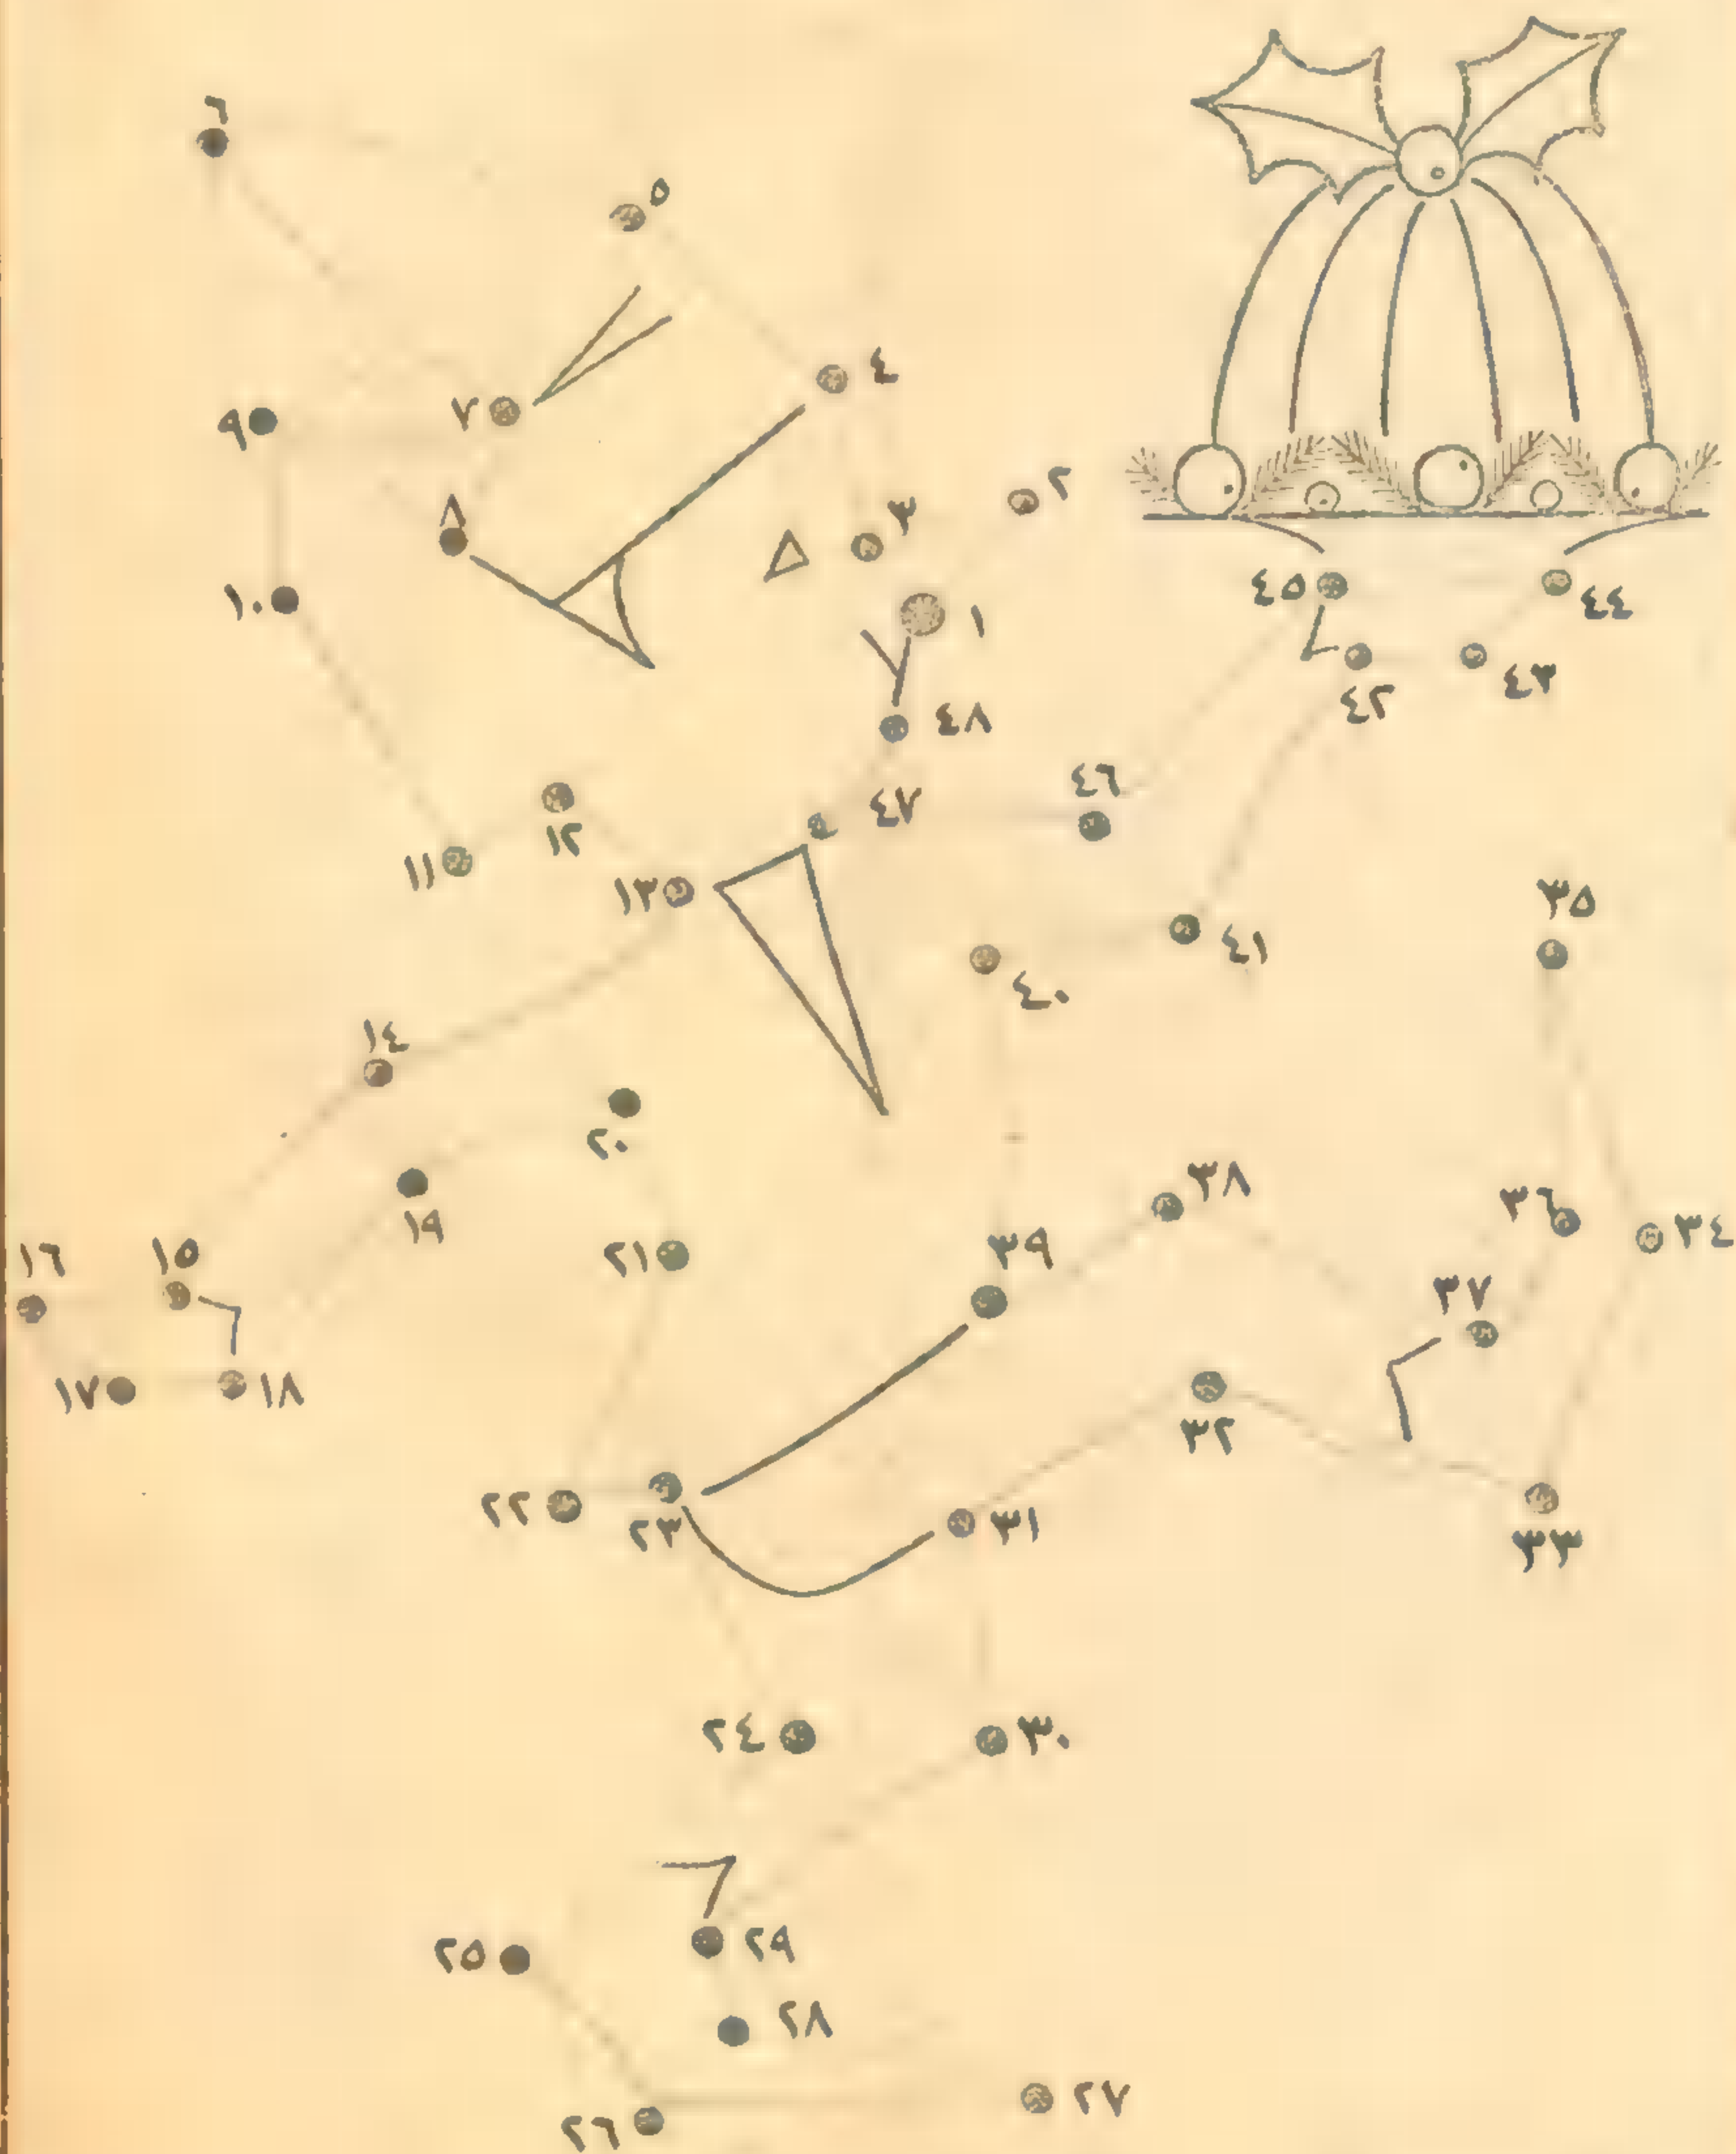 ٦
٥
٤
٩
٧
٨
٣
٢
١٠
١
٤٥
٤٤
٤٣
٤٢
٤٨
٤٧
٤٦
١١
١٢
١٣
٣٥
٤١
٤٠
١٤
٢٠
١٩
٣٨
٣٦
٣٤
١٦
١٥
٢١
٣٩
٣٧
١٧
١٨
٣٢
٢٢
٢٣
٣١
٣٣
٢٤
٣٠
٢٥
٢٩
٢٨
٢٧
٢٦